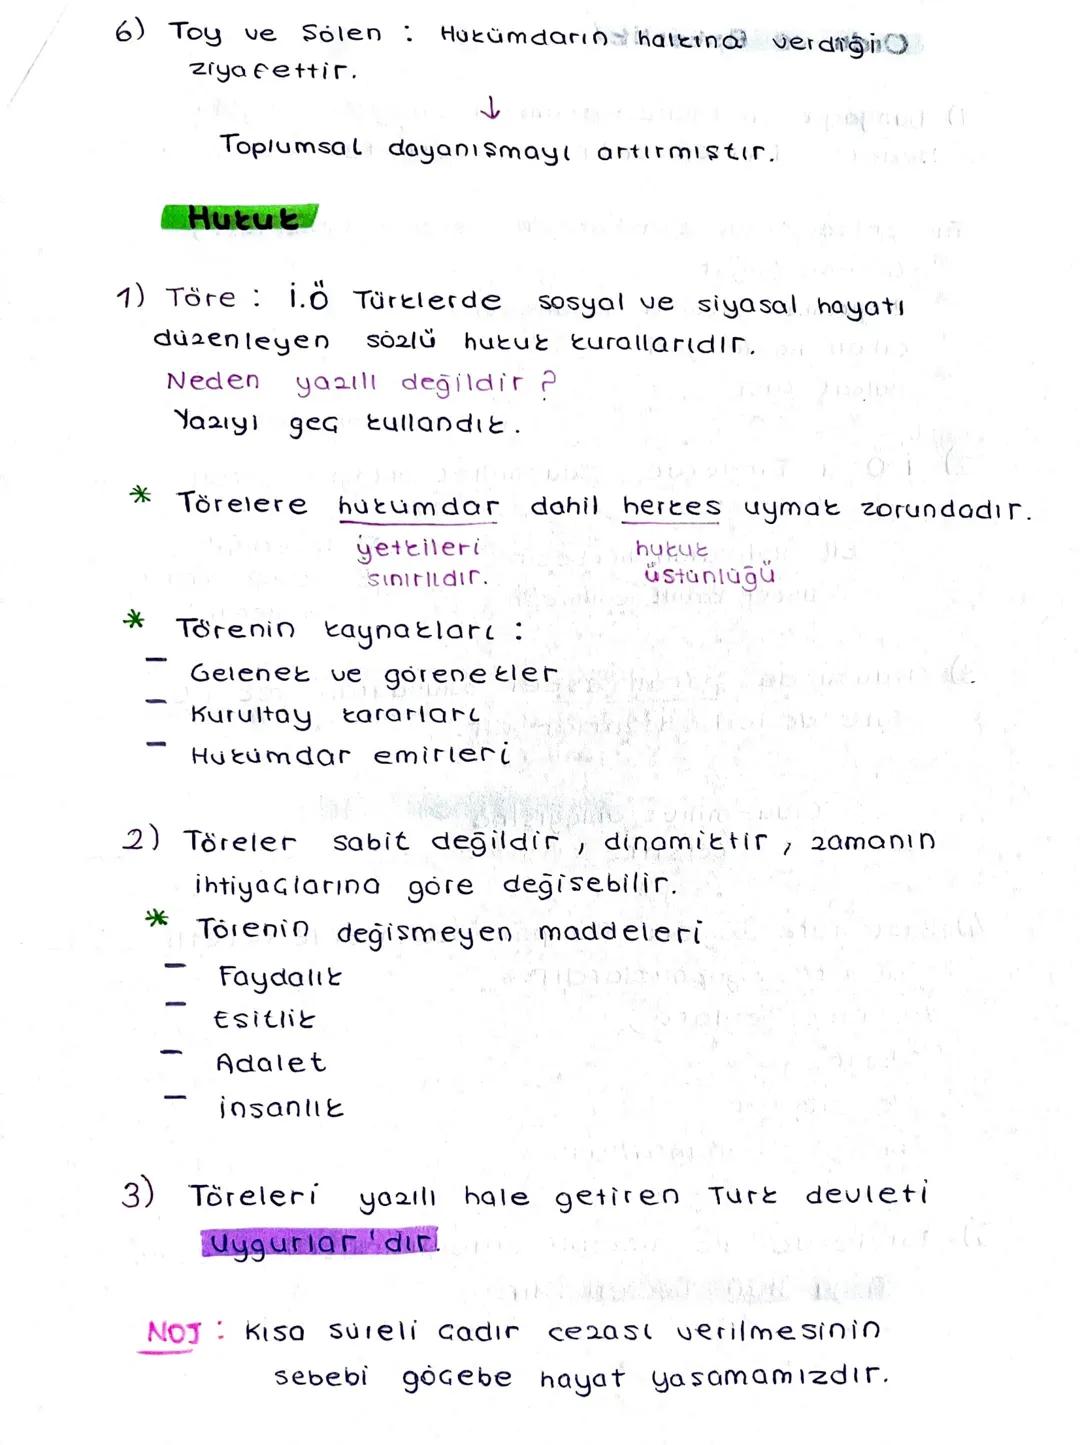 6) Toy ve Sölen : Hükümdarın halkına verdiği
ziyafettir.
↓
Toplumsal dayanışmayı artırmıştır.
Hukuk
1) Töre : İ.Ö Türklerde sosyal ve siyasal hayatı
düzenleyen sözlü hukuk kurallarıdır.
Neden yazılı değildir ?
Yazıyı geç kullandık.
* Törelere hükümdar dahil herkes uymak zorundadır.
yetkileri hukuk
sınırlıdır. üstünlüğü
* Törenin kaynakları :
- Gelenek ve görenekler
- Kurultay kararları
- Hükümdar emirleri
2) Töreler sabit değildir, dinamiktir, zamanın
ihtiyaçlarına göre değişebilir.
* Törenin değişmeyen maddeleri
- Faydalık
- Esitlik
- Adalet
- insanlık
3) Töreleri yazılı hale getiren Türk devleti
Uygurlar'dır.
NOT : Kısa süreli çadır cezası verilmesinin
sebebi göçebe hayat yaşamamızdır.